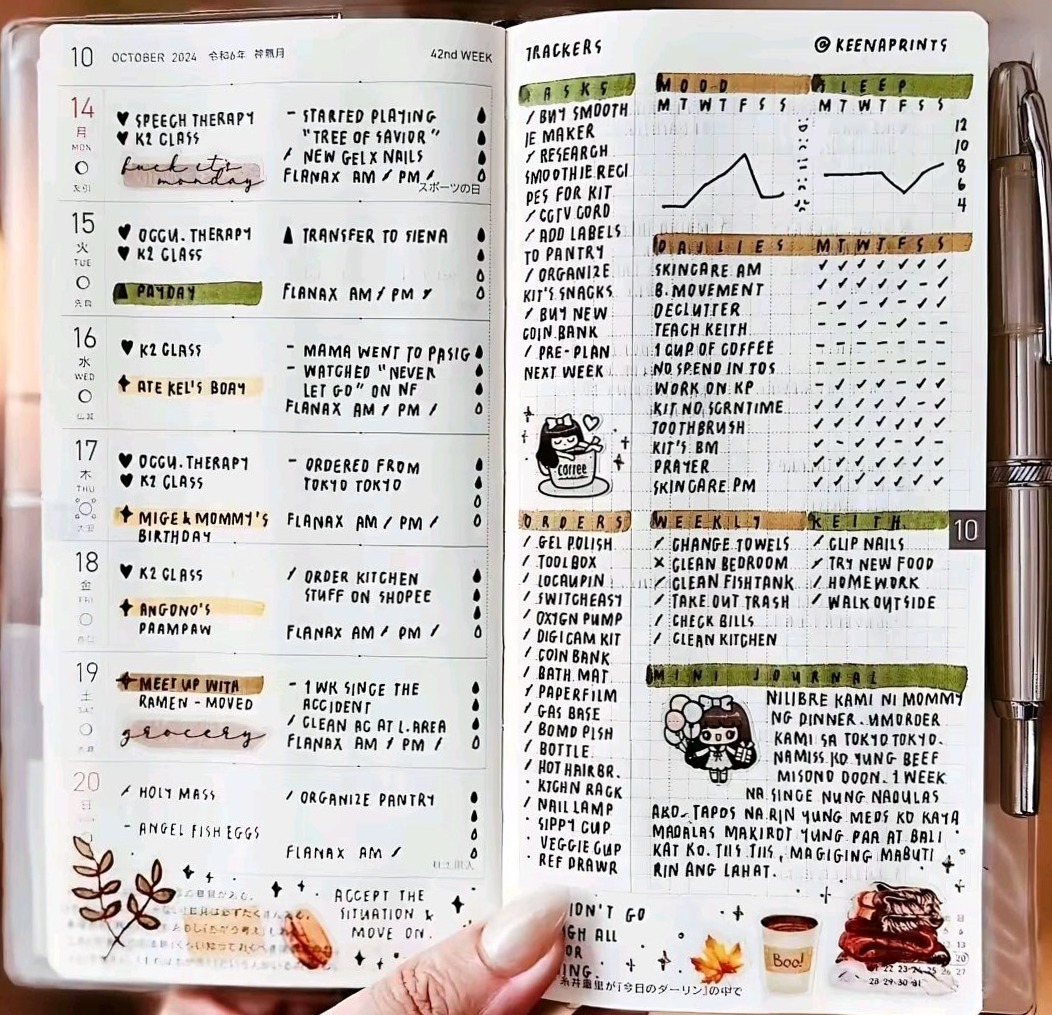 10 OCTOBER 2024 令和6年 神無月 42nd WEEK
14
月
MON
♥ SPEECH THERAPY
♥ K2 CLASS
fuck it's
monday
- STARTED PLAYING
"TREE OF SAVIOR"
/ NEW GELX NAILS
FLANAX AM / PM /
スポーツの日
友引
15
火
TUE
♥ OCCU. THERAPY
♥ K2 CLASS
▲ PAYDAY
▲ TRANSFER TO SIENA
FLANAX AM / PM /
先負
16
水
WED
♥ K2 CLASS
✦ ATE KEL'S BDAY
- MAMA WENT TO PASIG
- WATCHED "NEVER
LET GO" ON NF
FLANAX AM / PM /
仏滅
17
木
THU
♥ OCCU. THERAPY
♥ K2 CLASS
✦ MIGE & MOMMY'S
BIRTHDAY
- ORDERED FROM
TOKYO TOKYO
FLANAX AM / PM /
大安
18
金
FRI
♥ K2 CLASS
✦ ANGONO'S
PAAMPAW
/ ORDER KITCHEN
STUFF ON SHOPEE
FLANAX AM / PM /
19
土
SAT
✦ MEET UP WITH
RAMEN - MOVED
grocery
- 1 WK SINCE THE
ACCIDENT
/ CLEAN AC AT L. AREA
FLANAX AM / PM /
20
日
/ HOLY MASS
- ANGEL FISH EGGS
/ ORGANIZE PANTRY
FLANAX AM /
ACCEPT THE
SITUATION &
MOVE ON.
TRACKERS
@KEENAPRINTS
TASKS
/ BUY SMOOTH
IE MAKER
/ RESEARCH
SMOOTHIE RECI
PES FOR KIT
/ CCTV CORD
/ ADD LABELS
TO PANTRY
/ ORGANIZE
KIT'S SNACKS
/ BUY NEW
COIN BANK
/ PRE-PLAN
NEXT WEEK
coffee
MOOD
M T W T F S S
SLEEP
M T W T F S S
12
10
8
6
4
DAILIES M T W T F S S
SKINCARE AM ✓ ✓ ✓ ✓ ✓ ✓ ✓
B. MOVEMENT
DECLUTTER
TEACH KEITH
1 CUP OF COFFEE
NO SPEND IN TOS
WORK ON KP
KIT NO SCRNTIME
TOOTHBRUSH
KIT'S BM
PRAYER
SKINCARE PM
ORDERS
/ GEL POLISH
/ TOOLBOX
/ LOCAUPIN
/ SWITCHEASY
/ OXYGN PUMP
/ DIGICAM KIT
/ COIN BANK
/ BATH MAT
/ PAPERFILM
/ GAS BASE
/ BOMD PISH
/ BOTTLE
/ HOT HAIR BR.
· KTCHN RACK
/ NAIL LAMP
· SIPPY CUP
· VEGGIE CUP
· REF DRAWR
WEEKLY
/ CHANGE TOWELS
× CLEAN BEDROOM
/ CLEAN FISHTANK
/ TAKE OUT TRASH
/ CHECK BILLS
/ CLEAN KITCHEN
KEITH
/ CLIP NAILS
/ TRY NEW FOOD
/ HOMEWORK
/ WALK OUTSIDE
10
MINI JOURNAL
NILIBRE KAMI NI MOMMY
NG DINNER. UMORDER
KAMI SA TOKYO TOKYO.
NAMISS KO YUNG BEEF
MISONO DOON. 1 WEEK
NA SINCE NUNG NADULAS
AKO. TAPOS NA RIN YUNG MEDS KO KAYA
MADALAS MAKIROT YUNG PAA AT BALI
KAT KO. TIIS TIIS, MAGIGING MABUTI
RIN ANG LAHAT.
Boo!
糸井重里が『今日のダーリン』の中で
22 23 24 25 26 27
28 29 30 31